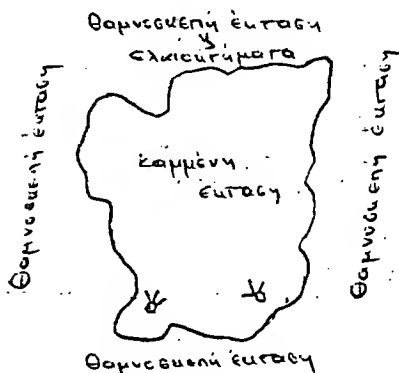 θαμνοσκεπή έκταση
ελαιοκτήματα
θαμνοσκεπή έκταση
καμμένη
έκταση
θαμνοσκεπή έκταση
θαμνοσκεπή έκταση